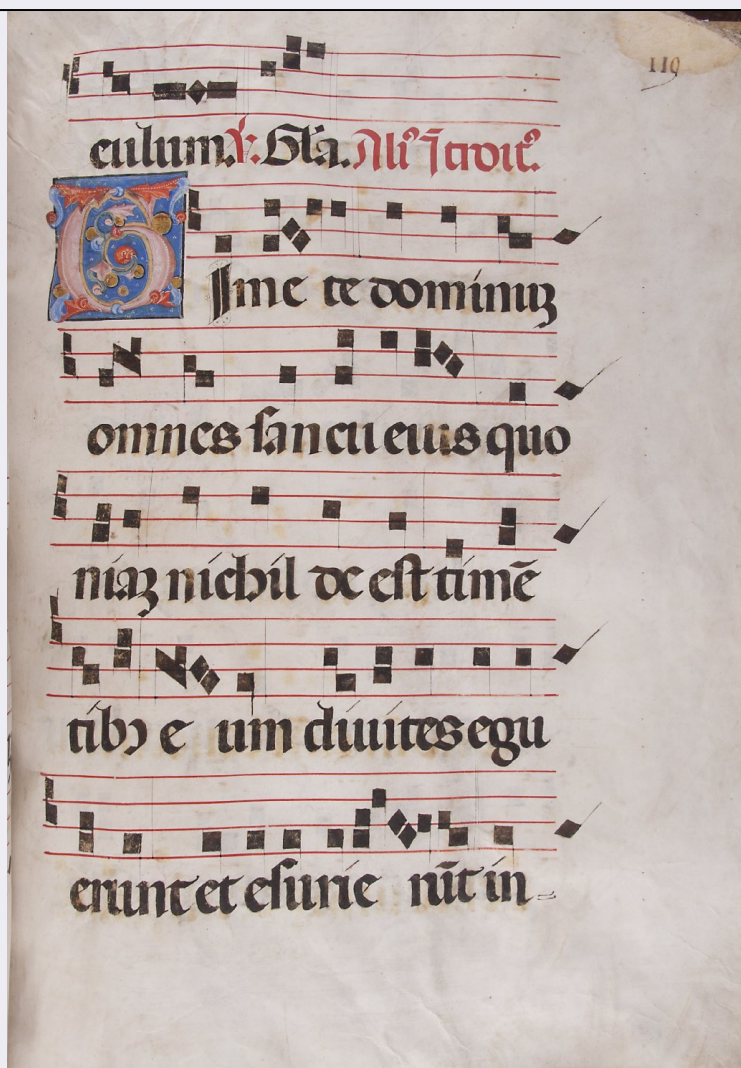 119
culum. ℣. Gl'a. Ali' ītroit'.
Time te dominuꝫ
omnes sancti eius quo
niaꝫ nichil de est timē
tibꝫ e um diuites egu
erunt et esurie rūt in-